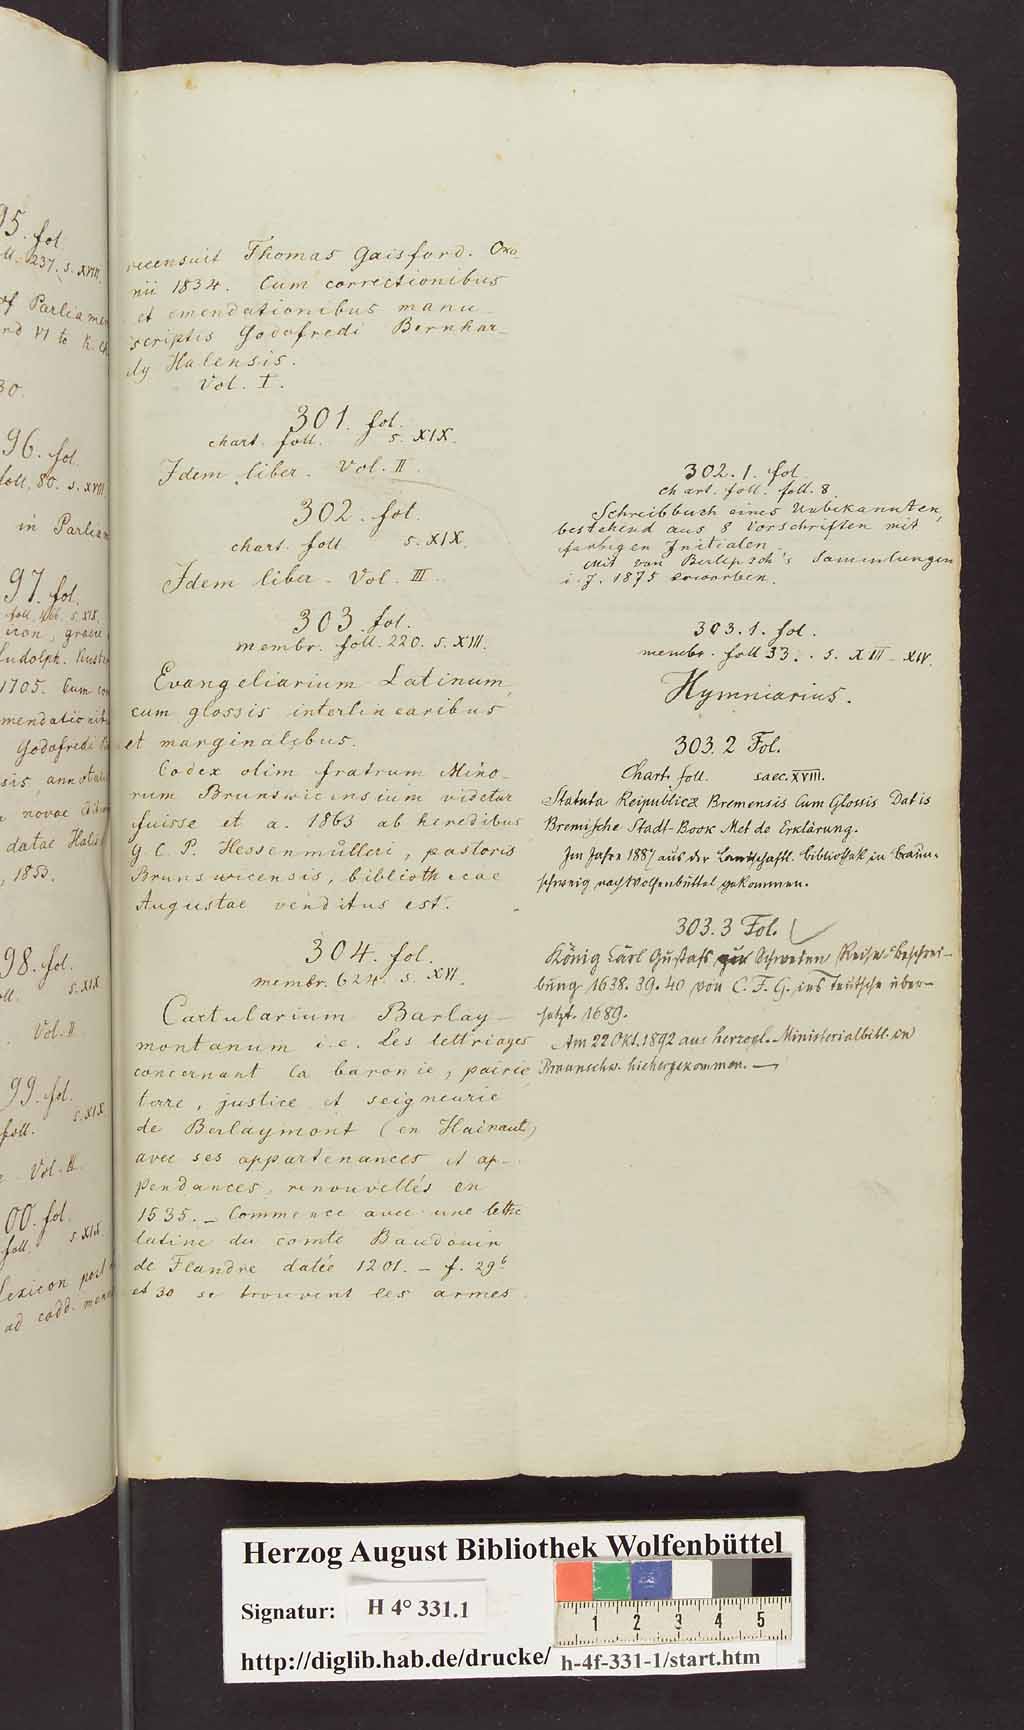 95. fol.
foll. 237. s. XVIII.
of Parliamen
rd VI to K.
30.
96. fol.
foll. 80. s. XVIII
in Parliam
97. fol.
s. XIX.
icon, graece
Ludolph. Kuster
1705. Cum
mendationib
Godofredi
sis, annotat
novae
datae Halis
, 1853.
98. fol.
s. XIX
Vol. II
99. fol.
foll. s. XIX
Vol. III.
00. fol.
foll. s. XIX.
Lexicon post
ad codd. man
recensuit Thomas Gaisford. Oxo
nii 1834. Cum correctionibus
et emendationibus manu
scriptis Godofredi Bernhar-
dy Halensis.
Vol. I.
301. fol.
chart. foll. s. XIX.
Idem liber. Vol. II.
302. fol.
chart. foll s. XIX.
Idem liber. Vol. III.
303. fol.
membr. foll. 220. s. XIII.
Evangeliarium Latinum,
cum glossis interlinearibus
et marginalibus.
Codex olim fratrum Mino-
rum Brunswicensium videtur
fuisse et a. 1863 ab heredibus
G. C. P. Hessenmülleri, pastoris
Brunswicensis, bibliothecae
Augustae venditus est.
304. fol.
membr. 624. s. XVI.
Cartularium Barlay-
montanum i. e. Les lettriages
concernant la baronie, pairie,
terre, justice et seigneurie
de Berlaymont (en Hainaut)
avec ses appartenances et ap-
pendances, renouvellés en
1535. – Commence avec une lettre
latine du comte Baudouin
de Flandre datée 1201. – f. 29b
et 30 se trouvent les armes
302. 1. fol
chart. foll. foll. 8
Schreibbuch eines Unbekannten,
bestehend aus 8 Vorschriften mit
farbigen Initialen.
Mit von Berlepsch's Sammlungen
i. J. 1875 erworben.
303. 1. fol.
membr. foll 33. . s. XIII – XIV.
Hymniarius.
303. 2 Fol.
Chart. foll. saec. XVIII.
Statuta Reipublicæ Bremensis Cum Glossis Dat is
Bremische Stadt-Book Met de Erklärung.
Im Jahre 1887 aus der Landschaftl. Bibliothek in Braun-
schweig nach Wolfenbüttel gekommen.
303. 3 Fol.
König Carl Gustafs zu Schweden Reise-Beschrei-
bung 1638. 39. 40 von C. F. G. ins Teutsche über-
setzt. 1689.
Am 22 Okt. 1892 aus herzogl. Ministerialbibl. in
Braunschw. hiehergekommen. –
Herzog August Bibliothek Wolfenbüttel
Signatur: H 4° 331.1
1 2 3 4 5
http://diglib.hab.de/drucke/ h-4f-331-1/start.htm